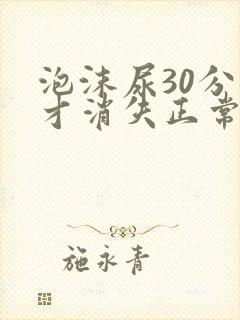 泡沫尿30分
才消失正常
施永青